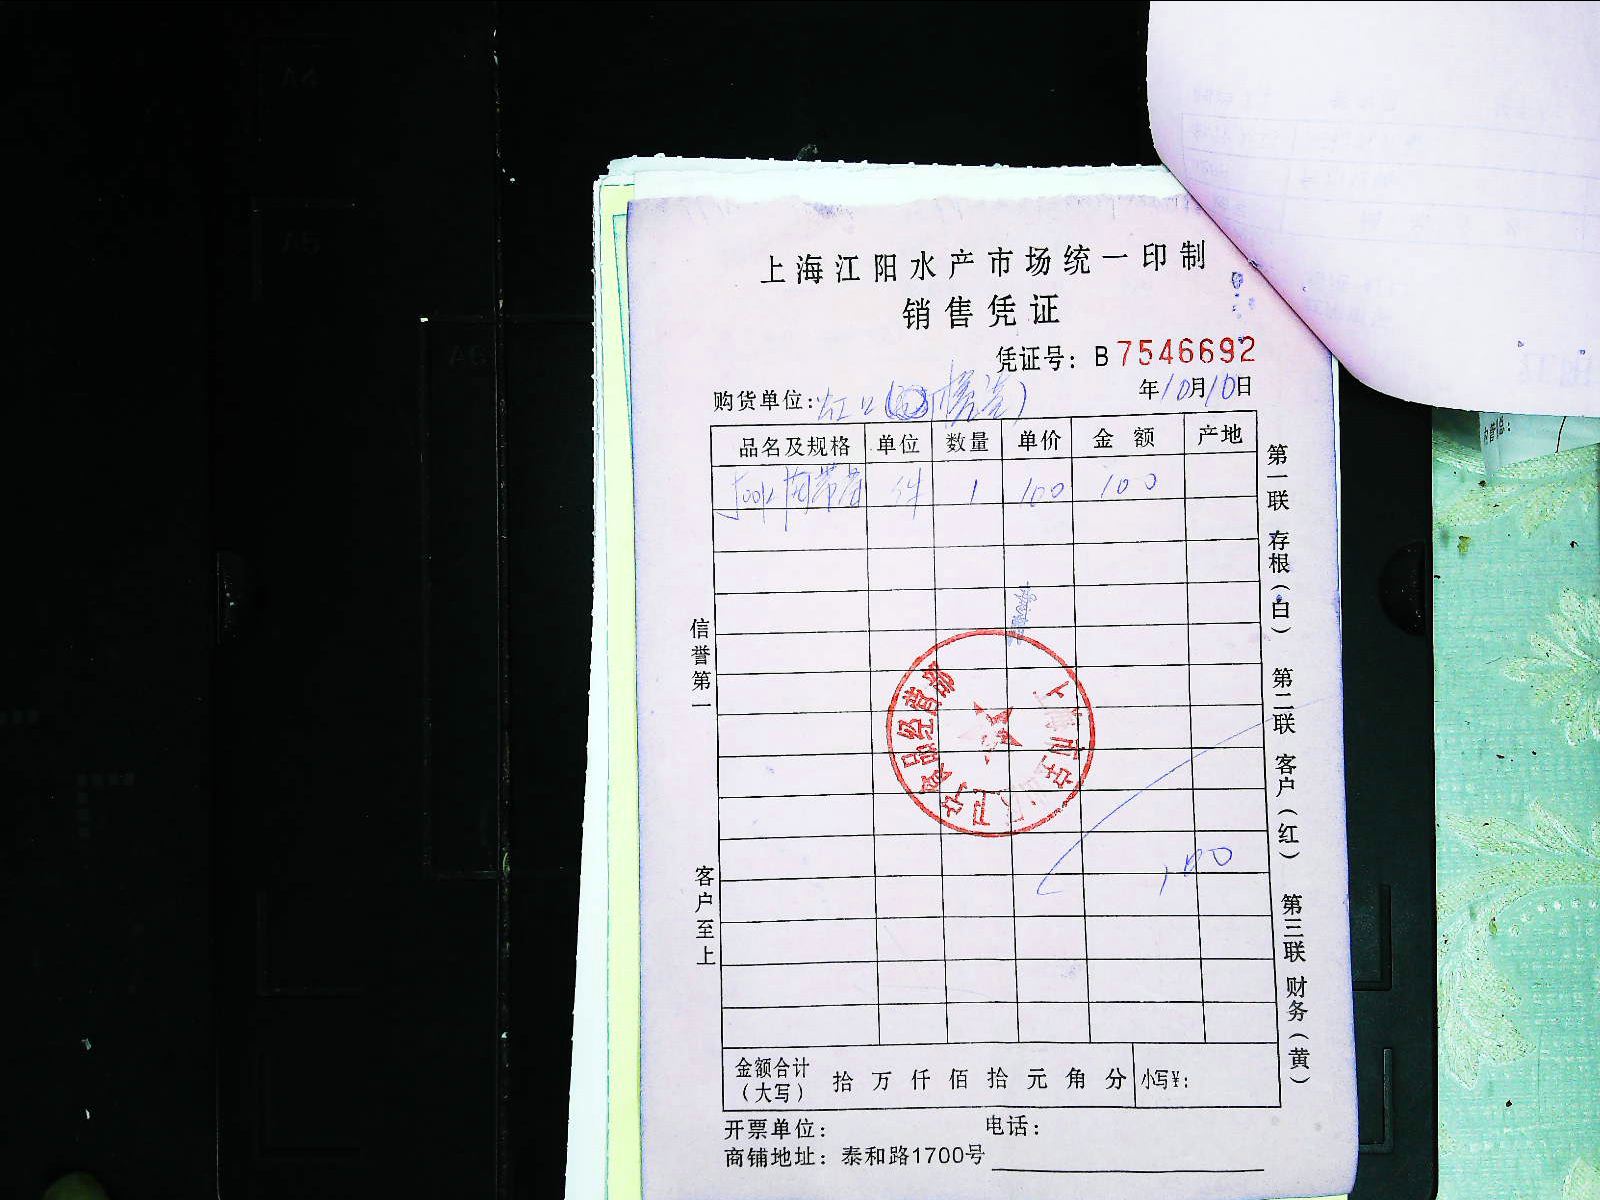 上海江阳水产市场统一印制
销售凭证
凭证号：B 7546692
购货单位：虹口 年10月10日
品名及规格 单位 数量 单价 金额 产地
件 1 100 100
100
信誉第一
客户至上
第一联 存根（白） 第二联 客户（红） 第三联 财务（黄）
金额合计（大写） 拾 万 仟 佰 拾 元 角 分 小写¥：
开票单位： 电话：
商铺地址：泰和路1700号
食品经营部
A4
A5
A6